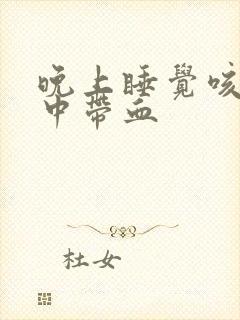 晚上睡覺咳
中帶血
杜女